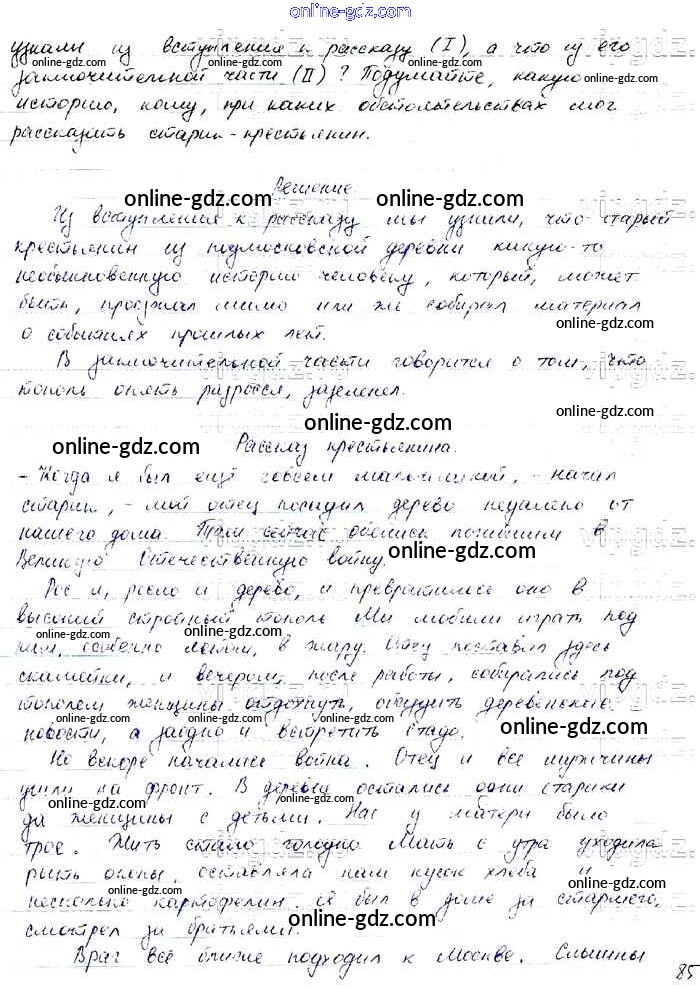 online-gdz.com
узнали из вступления к рассказу (I), а что из его
заключительной части (II)? Подумайте, какую
историю, кому, при каких обстоятельствах мог
рассказать старик-крестьянин.
Решение.
Из вступления к рассказу мы узнали, что старый
крестьянин из подмосковской деревни какую-то
необыкновенную историю человеку, который, может
быть, проезжал мимо или же собирал материал
о событиях прошлых лет.
В заключительной части говорится о том, что
тополь опять разросся, зазеленел.
Рассказ крестьянина.
- Когда я был ещё совсем мальчишкой, - начал
старик, - мой отец посадил дерево недалеко от
нашего дома. Там сейчас обелиск погибшим в
Великую Отечественную войну.
Рос я, росло и дерево, и превратилось оно в
высокий стройный тополь. Мы любили играть под
ним, особенно летом, в жару. Отец поставил здесь
скамейки, и вечером, после работы, собирались под
тополем женщины отдохнуть, обсудить деревенские
новости, а заодно и встретить стадо.
Но вскоре началась война. Отец и все мужчины
ушли на фронт. В деревне остались одни старики
да женщины с детьми. Нас у матери было
трое. Жить стало голодно. Мать с утра уходила
рыть окопы, оставляла нам кусок хлеба и
несколько картофелин. Я был в доме за старшего,
смотрел за братьями.
Враг всё ближе подходил к Москве. Слышны
85